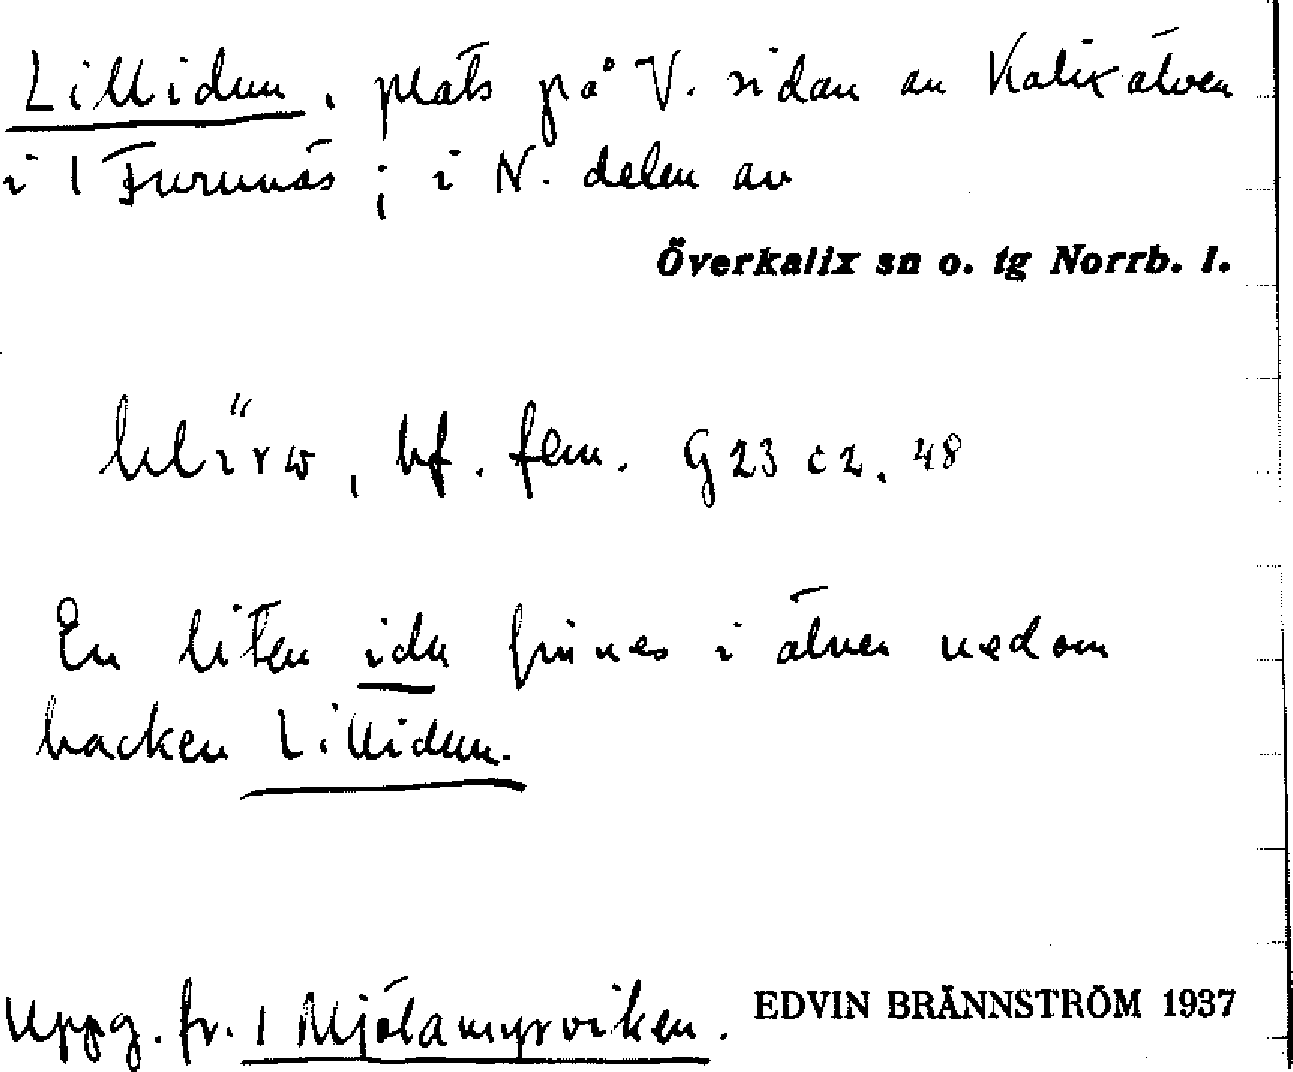 Lillidun, plats på V. sidan av Kalixälven
i 1 Furunäs; i N. delen av
Överkalix sn o. tg Norrb. l.
bf. fem. G 23 c 2. 48
En liten ida finnes i älven nedom
backen Lillidun.
Uppg. fr. 1 Mjölamyrviken. EDVIN BRÄNNSTRÖM 1937